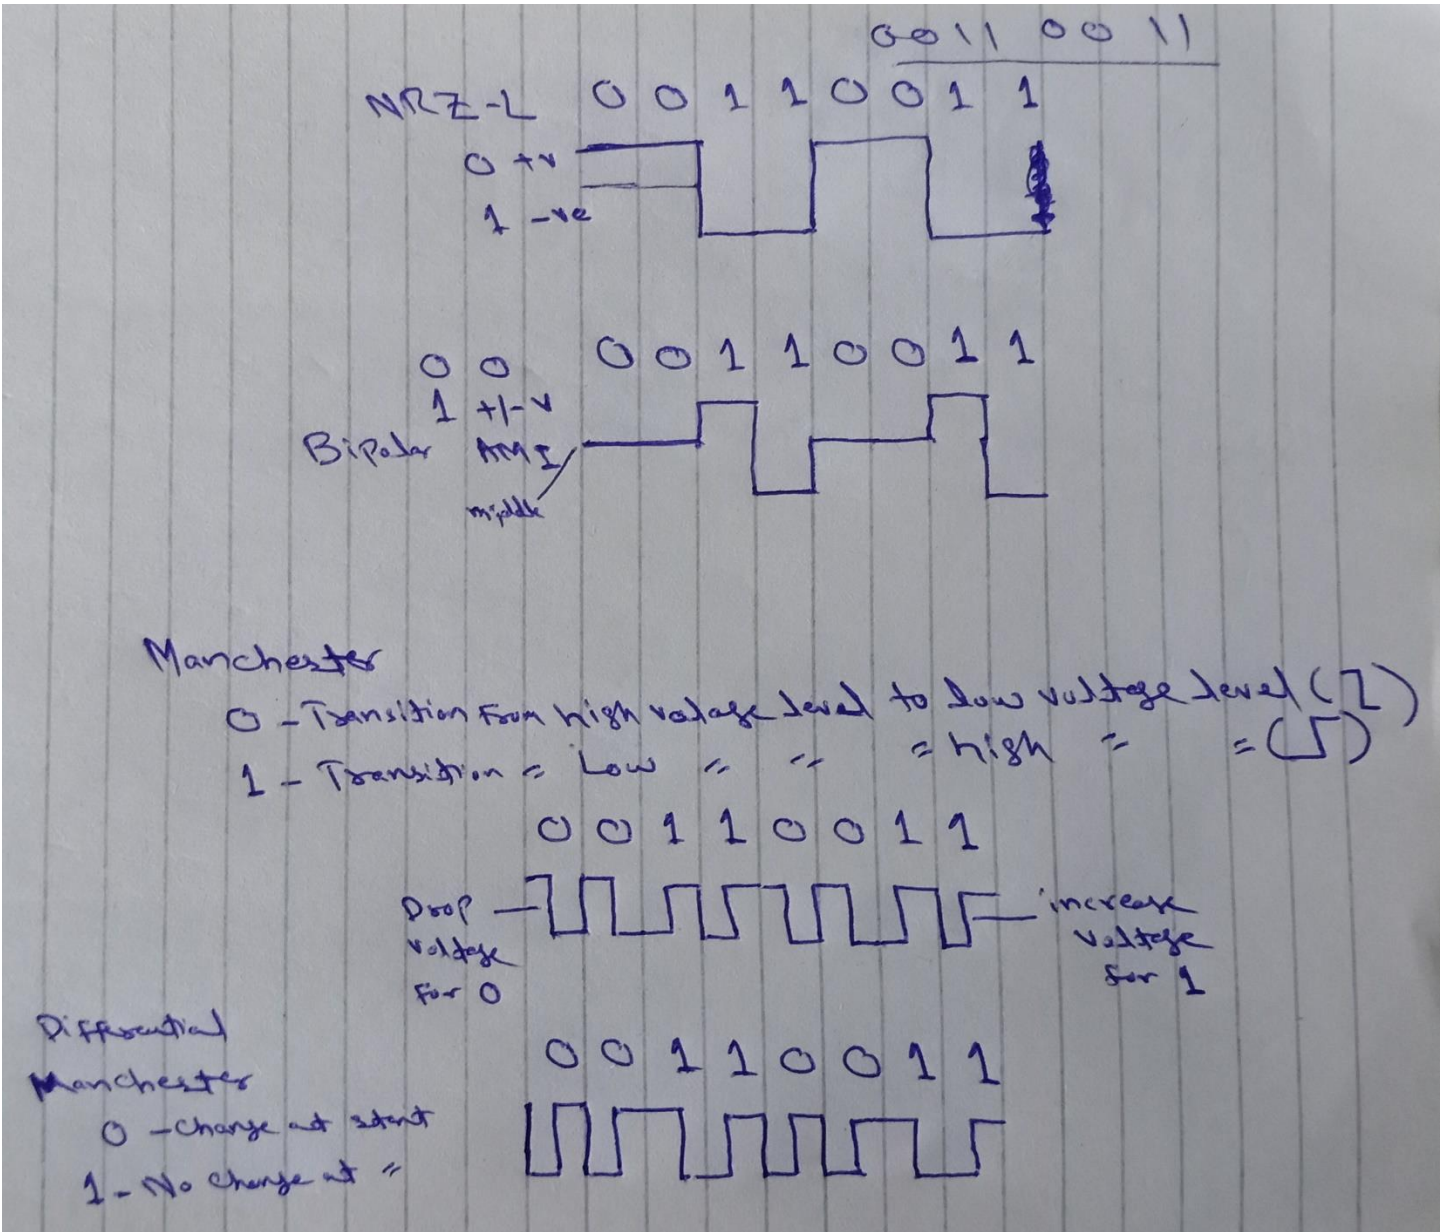 0011 0011
NRZ-L 0 0 1 1 0 0 1 1
0 +v
1 -ve
0 0 0 0 1 1 0 0 1 1
1 +/- v
Bipolar AMI
middle
Manchester
0 - Transition From high valage level to low voltage level ( )
1 - Transition = Low = = = high = = ( )
0 0 1 1 0 0 1 1
Drop voltage for 0
increase voltage for 1
Differential
Manchester
0 0 1 1 0 0 1 1
0 - Change at start
1 - No change at =